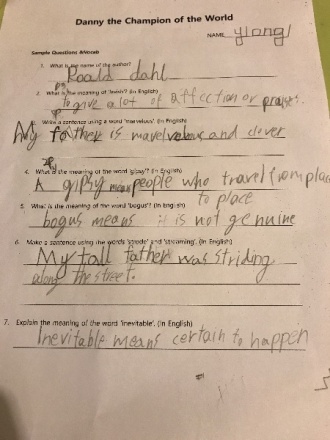 Danny the Champion of the World
NAME yiongi
Sample Questions &Vocab
1. What is the name of the author?
Roald dahl
2. What is the meaning of 'lavish'? (In English)
to give a lot of affection or praises.
3. Write a sentence using a word 'marvelous'. (In English)
My father is mavelvelous and clover
4. What is the meaning of the word 'gipsy'? (In English)
A gipsy mean people who travel from place
to place
5. What is the meaning of the word 'bogus'? (In English)
bogus means it is not genuine
6. Make a sentence using the words 'strode' and 'streaming'. (In English)
My tall father was striding
along the street.
7. Explain the meaning of the word 'inevitable'. (In English)
Inevitable means certain to happen